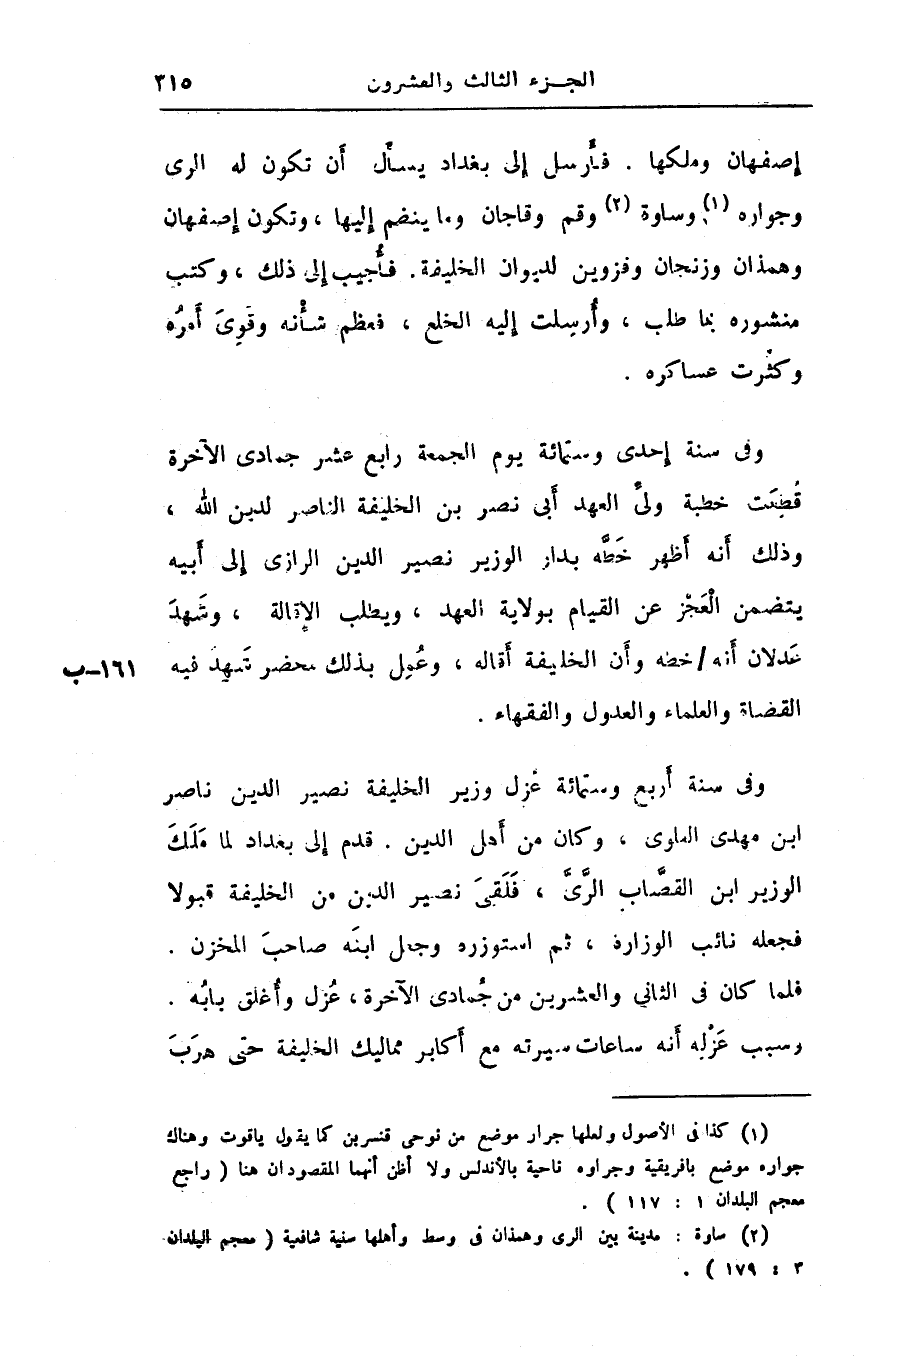 الجزء الثالث والعشرون ٣١٥
إصفهان وملكها . فأُرسل إلى بغداد يسأل أن تكون له الرى
وجواره (١)، وساوة (٢) وقم وقاجان وما ينضم إليها ، وتكون إصفهان
وهمذان وزنجان وقزوين لديوان الخليفة . فأُجيب إلى ذلك ، وكتب
منشوره بما طلب ، وأُرسِلت إليه الخلع ، فعظم شأْنه وقَوِىَ أَمرُه
وكثُرت عساكره .
وفى سنة إحدى وستمائة يوم الجمعة رابع عشر جمادى الآخرة
قُطِعَت خطبة ولىِّ العهد أَبى نصر بن الخليفة الناصر لدين الله ،
وذلك أَنه أَظهر خَطَّه بدار الوزير نصير الدين الرازى إلى أَبيه
يتضمن الْعَجْز عن القيام بولاية العهد ، ويطلب الإقالة ، وشَهِدَ
عَدلان أَنه / خطه وأَن الخليفة أَقاله ، وعُمِل بذلك محضر شَهِدَ فيه ١٦١-ب
القضاة والعلماء والعدول والفقهاء .
وفى سنة أَربع وستمائة عُزل وزير الخليفة نصير الدين ناصر
ابن مهدى العلوى ، وكان من أَهل الدين . قدم إلى بغداد لما مَلَكَ
الوزير ابن القصَّاب الرَّىَّ ، فَلَقِىَ نصير الدين من الخليفة قبولا
فجعله نائب الوزارة ، ثم استوزره وجعل ابنَه صاحبَ المخزن .
فلما كان فى الثانى والعشرين من جُمادى الآخرة ، عُزل وأُغلق بابُه .
وسبب عَزْلِه أَنه ساءت سيرته مع أَكابر مماليك الخليفة حتى هرَبَ
(١) كذا فى الأصول ولعلها جرار موضع من نوحى قنسرين كما يقول ياقوت وهناك
جواره موضع بافريقية وجراوه ناحية بالأندلس ولا أظن أنهما المقصودان هنا ( راجع
معجم البلدان ١ : ١١٧ ) .
(٢) ساوة : مدينة بين الرى وهمذان فى وسط وأهلها سنية شافعية ( معجم البلدان
٣ : ١٧٩ ) .